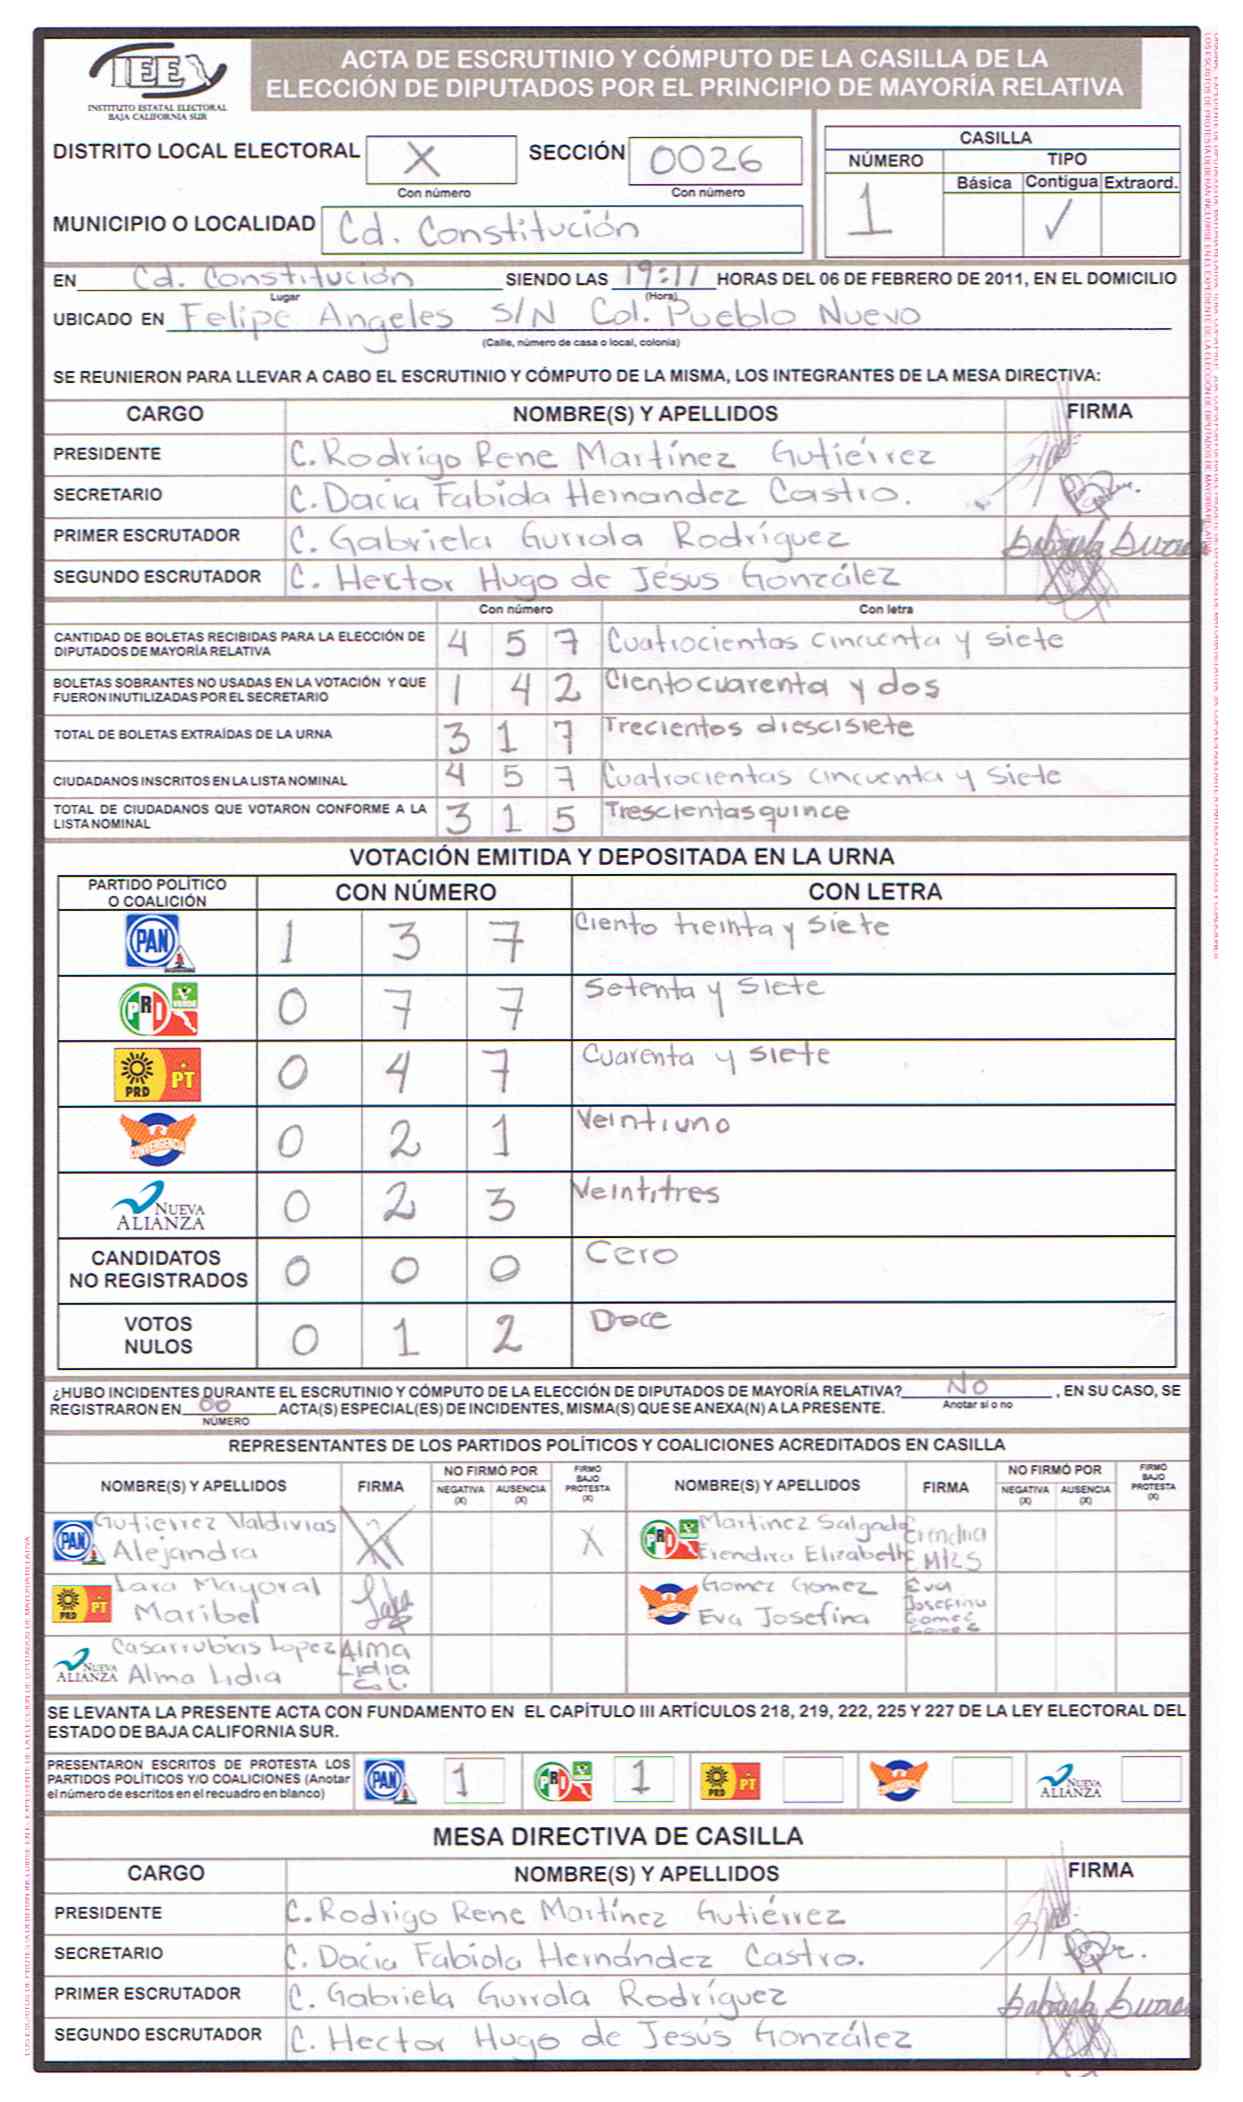 IEEBCS
INSTITUTO ESTATAL ELECTORAL
BAJA CALIFORNIA SUR
ACTA DE ESCRUTINIO Y CÓMPUTO DE LA CASILLA DE LA
ELECCIÓN DE DIPUTADOS POR EL PRINCIPIO DE MAYORÍA RELATIVA
DISTRITO LOCAL ELECTORAL X SECCIÓN 0026
Con número Con número
CASILLA
NÚMERO TIPO
Básica Contigua Extraord.
1 ✓
MUNICIPIO O LOCALIDAD Cd. Constitución
EN Cd. Constitución SIENDO LAS 19:11 HORAS DEL 06 DE FEBRERO DE 2011, EN EL DOMICILIO
Lugar (Hora)
UBICADO EN Felipe Angeles S/N Col. Pueblo Nuevo
(Calle, número de casa o local, colonia)
SE REUNIERON PARA LLEVAR A CABO EL ESCRUTINIO Y CÓMPUTO DE LA MISMA, LOS INTEGRANTES DE LA MESA DIRECTIVA:
CARGO NOMBRE(S) Y APELLIDOS FIRMA
PRESIDENTE C. Rodrigo Rene Martínez Gutiérrez
SECRETARIO C. Dacia Fabiola Hernandez Castro.
PRIMER ESCRUTADOR C. Gabriela Gurrola Rodríguez
SEGUNDO ESCRUTADOR C. Hector Hugo de Jesus González
Con número Con letra
CANTIDAD DE BOLETAS RECIBIDAS PARA LA ELECCIÓN DE
DIPUTADOS DE MAYORÍA RELATIVA 4 5 7 Cuatrocientos cincuenta y siete
BOLETAS SOBRANTES NO USADAS EN LA VOTACIÓN Y QUE
FUERON INUTILIZADAS POR EL SECRETARIO 1 4 2 Ciento cuarenta y dos
TOTAL DE BOLETAS EXTRAÍDAS DE LA URNA 3 1 7 Trecientos diescisiete
CIUDADANOS INSCRITOS EN LA LISTA NOMINAL 4 5 7 Cuatrocientas cincuenta y siete
TOTAL DE CIUDADANOS QUE VOTARON CONFORME A LA
LISTA NOMINAL 3 1 5 Trescientas quince
VOTACIÓN EMITIDA Y DEPOSITADA EN LA URNA
PARTIDO POLÍTICO
O COALICIÓN CON NÚMERO CON LETRA
PAN 1 3 7 Ciento treinta y siete
PRI VERDE 0 7 7 Setenta y siete
PRD PT 0 4 7 Cuarenta y siete
CONVERGENCIA 0 2 1 Veintiuno
NUEVA ALIANZA 0 2 3 Veintitres
CANDIDATOS
NO REGISTRADOS 0 0 0 Cero
VOTOS
NULOS 0 1 2 Doce
¿HUBO INCIDENTES DURANTE EL ESCRUTINIO Y CÓMPUTO DE LA ELECCIÓN DE DIPUTADOS DE MAYORÍA RELATIVA? No , EN SU CASO, SE
Anotar si o no
REGISTRARON EN 00 ACTA(S) ESPECIAL(ES) DE INCIDENTES, MISMA(S) QUE SE ANEXA(N) A LA PRESENTE.
NÚMERO
REPRESENTANTES DE LOS PARTIDOS POLÍTICOS Y COALICIONES ACREDITADOS EN CASILLA
NOMBRE(S) Y APELLIDOS FIRMA NO FIRMÓ POR NEGATIVA (X) AUSENCIA (X) FIRMÓ BAJO PROTESTA (X) NOMBRE(S) Y APELLIDOS FIRMA NO FIRMÓ POR NEGATIVA (X) AUSENCIA (X) FIRMÓ BAJO PROTESTA (X)
PAN Gutierrez Valdivias Alejandra X
PRI VERDE Martinez Salgado Erendira Elizabeth
PRD PT Lara Mayoral Maribel
CONVERGENCIA Gomez Gomez Eva Josefina Eva Josefina Gomez Gomez
NUEVA ALIANZA Casarrubias Lopez Alma Lidia Alma Lidia
SE LEVANTA LA PRESENTE ACTA CON FUNDAMENTO EN EL CAPÍTULO III ARTÍCULOS 218, 219, 222, 225 Y 227 DE LA LEY ELECTORAL DEL
ESTADO DE BAJA CALIFORNIA SUR.
PRESENTARON ESCRITOS DE PROTESTA LOS
PARTIDOS POLÍTICOS Y/O COALICIONES (Anotar
el número de escritos en el recuadro en blanco)
PAN 1 PRI VERDE 1 PRD PT CONVERGENCIA NUEVA ALIANZA
MESA DIRECTIVA DE CASILLA
CARGO NOMBRE(S) Y APELLIDOS FIRMA
PRESIDENTE C. Rodrigo Rene Martínez Gutiérrez
SECRETARIO C. Dacia Fabiola Hernández Castro.
PRIMER ESCRUTADOR C. Gabriela Gurrola Rodríguez
SEGUNDO ESCRUTADOR C. Hector Hugo de Jesús González